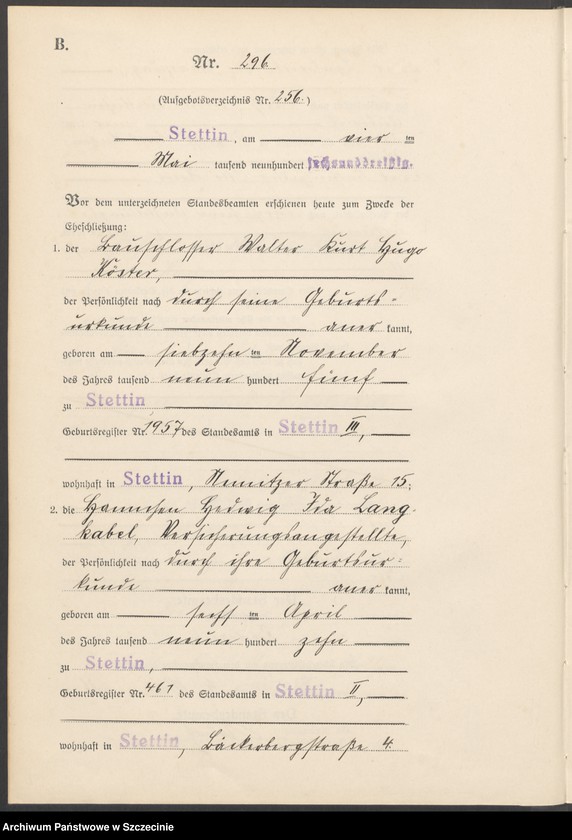 B.
Nr. 296.
(Aufgebotsverzeichnis Nr. 256.)
Stettin, am vier ten
Mai tausend neunhundert sechsunddreißig.
Vor dem unterzeichneten Standesbeamten erschienen heute zum Zwecke der
Eheschließung:
1. der Bauschlosser Walter Kurt Hugo
Köster,
der Persönlichkeit nach durch seine Geburts-
urkunde anerkannt,
geboren am siebzehn ten November
des Jahres tausend neun hundert fünf
zu Stettin
Geburtsregister Nr. 1957 des Standesamts in Stettin III,
wohnhaft in Stettin, Nemitzer Straße 15;
2. die Hannchen Hedwig Ida Lang-
kabel, Versicherungsangestellte,
der Persönlichkeit nach durch ihre Geburtsur-
kunde anerkannt,
geboren am sechs ten April
des Jahres tausend neun hundert zehn
zu Stettin,
Geburtsregister Nr. 461 des Standesamts in Stettin II,
wohnhaft in Stettin, Bäckerbergstraße 4.
Archiwum Państwowe w Szczecinie